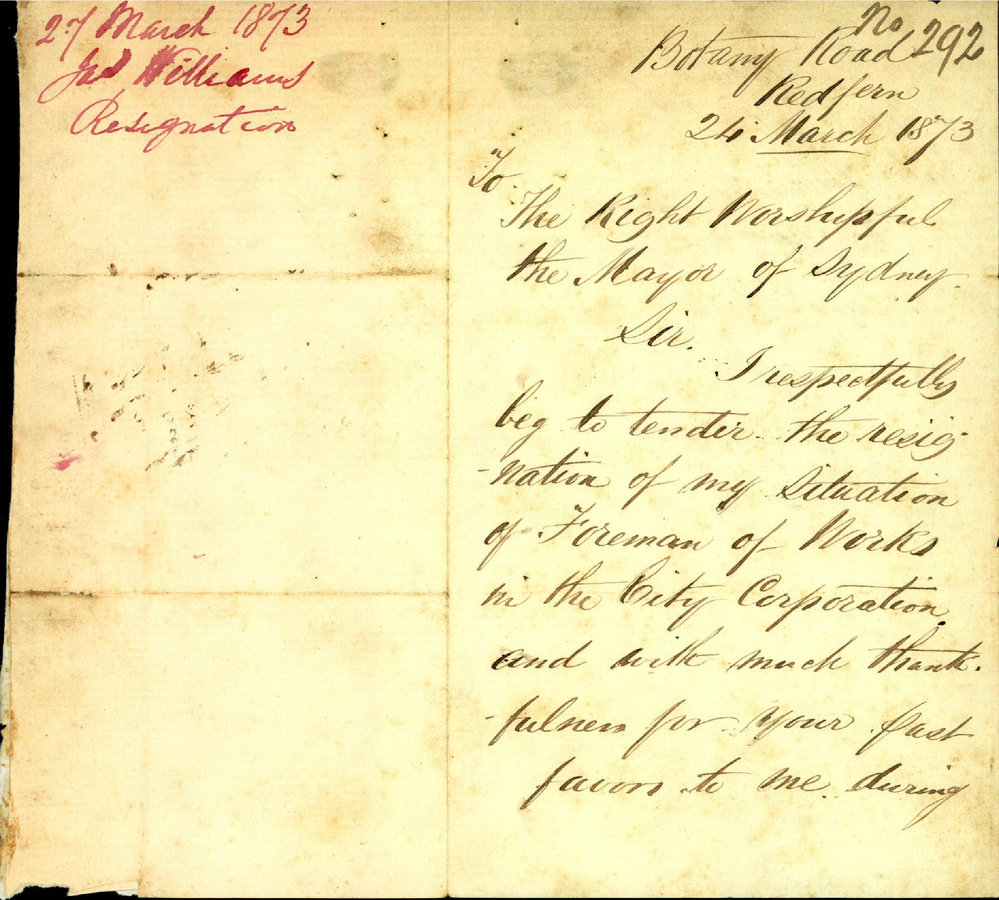 27 March 1873
Jas Williams
Resignation
No 292
Botany Road
Redfern
24 March 1873
To
The Right Worshipful
the Mayor of Sydney.
Sir.
I respectfully
beg to tender the resig-
-nation of my Situation
of Foreman of Works
in the City Corporation
and with much thank-
-fulness for your past
favors to me during